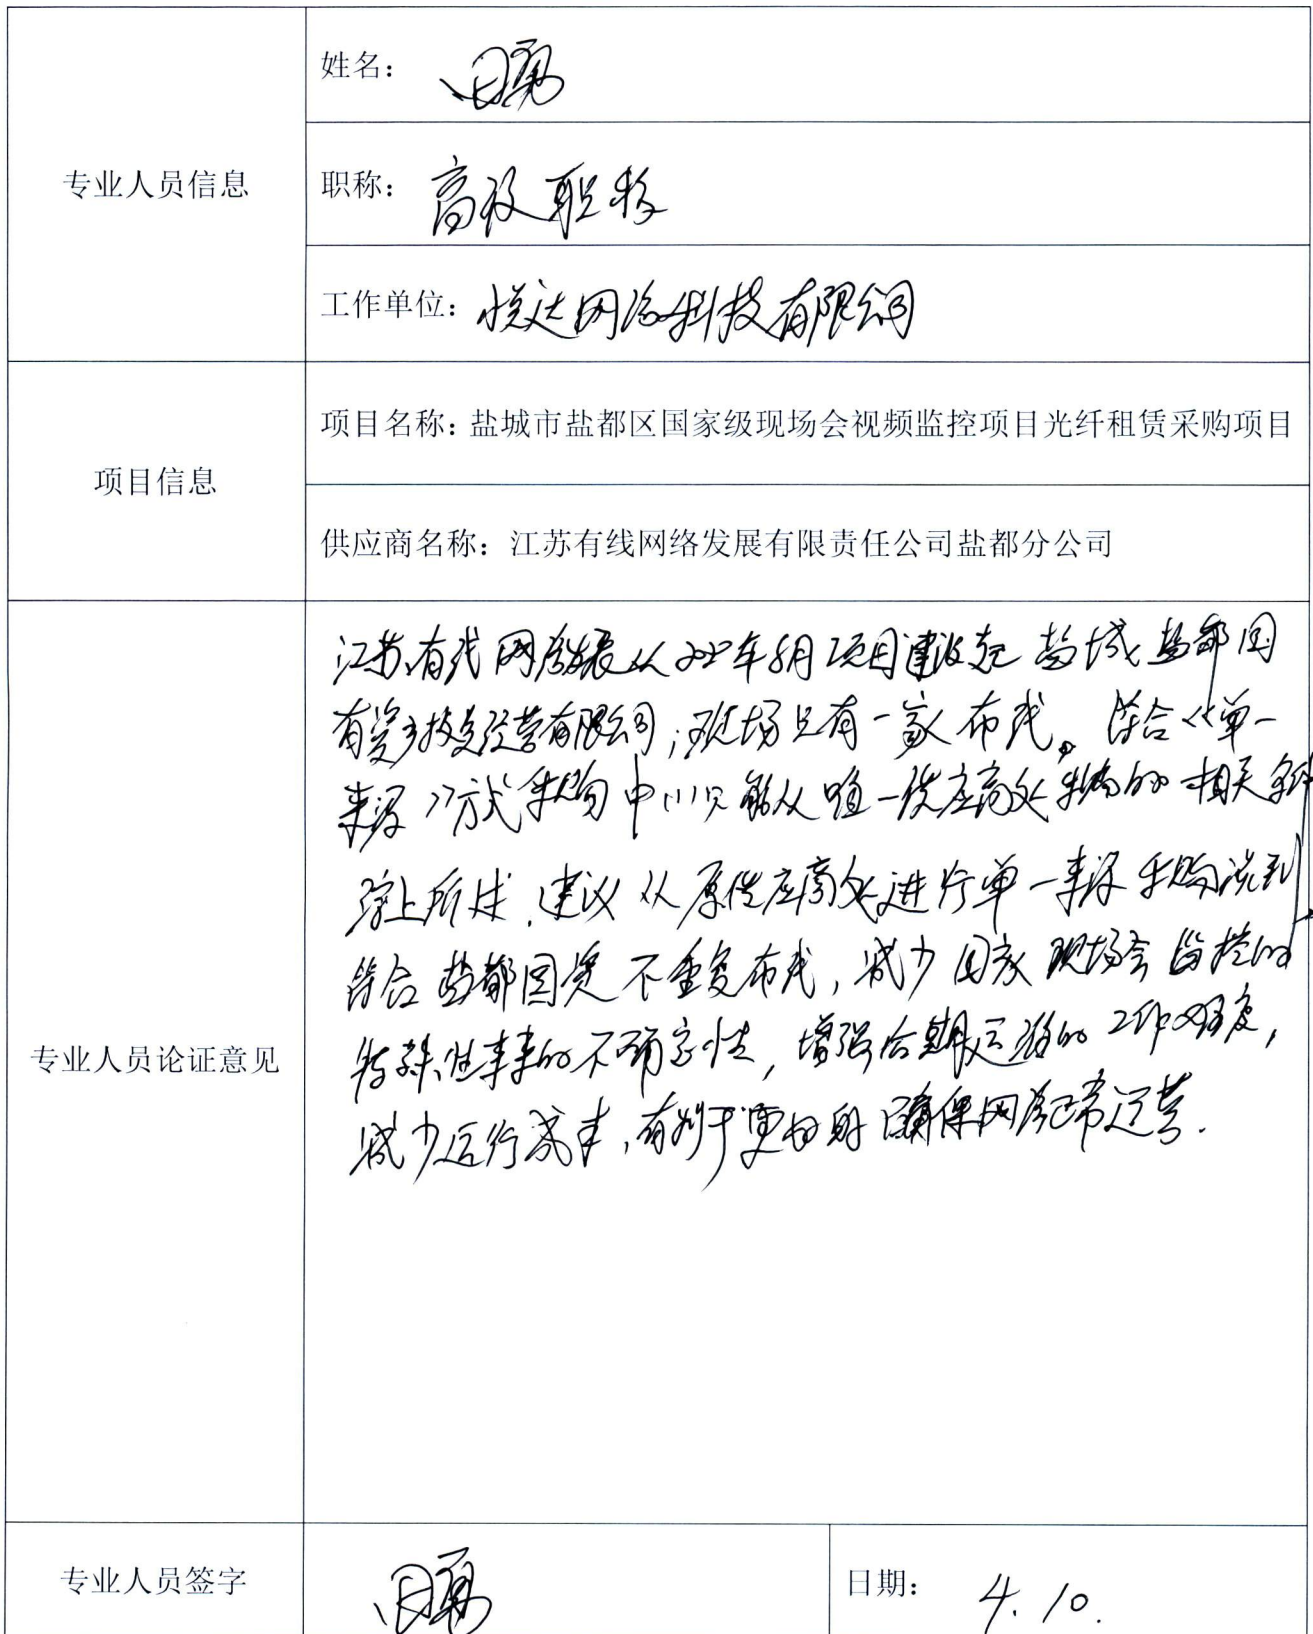 姓名：
专业人员信息
职称：高级职称
工作单位：悦达网络科技有限公司
项目信息
项目名称：盐城市盐都区国家级现场会视频监控项目光纤租赁采购项目
供应商名称：江苏有线网络发展有限责任公司盐都分公司
专业人员论证意见
江苏有线网络发展从年8月项目建设起 盐城盐都国
有资产投资经营有限公司，现场只有一家布线。符合《单一
来源》方式采购中(1)只能从唯一供应商处采购的相关条件
综上所述，建议从原供应商处进行单一来源采购
符合盐都国资不重复布线，减少国家现场会监控的
特殊性带来的不确定性，增强后期运维的工作
减少运行成本，有利于更好的确保网络正常运营.
专业人员签字
日期：4.10.